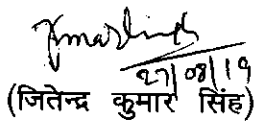 27/08/19
(जितेन्द्र कुमार सिंह)